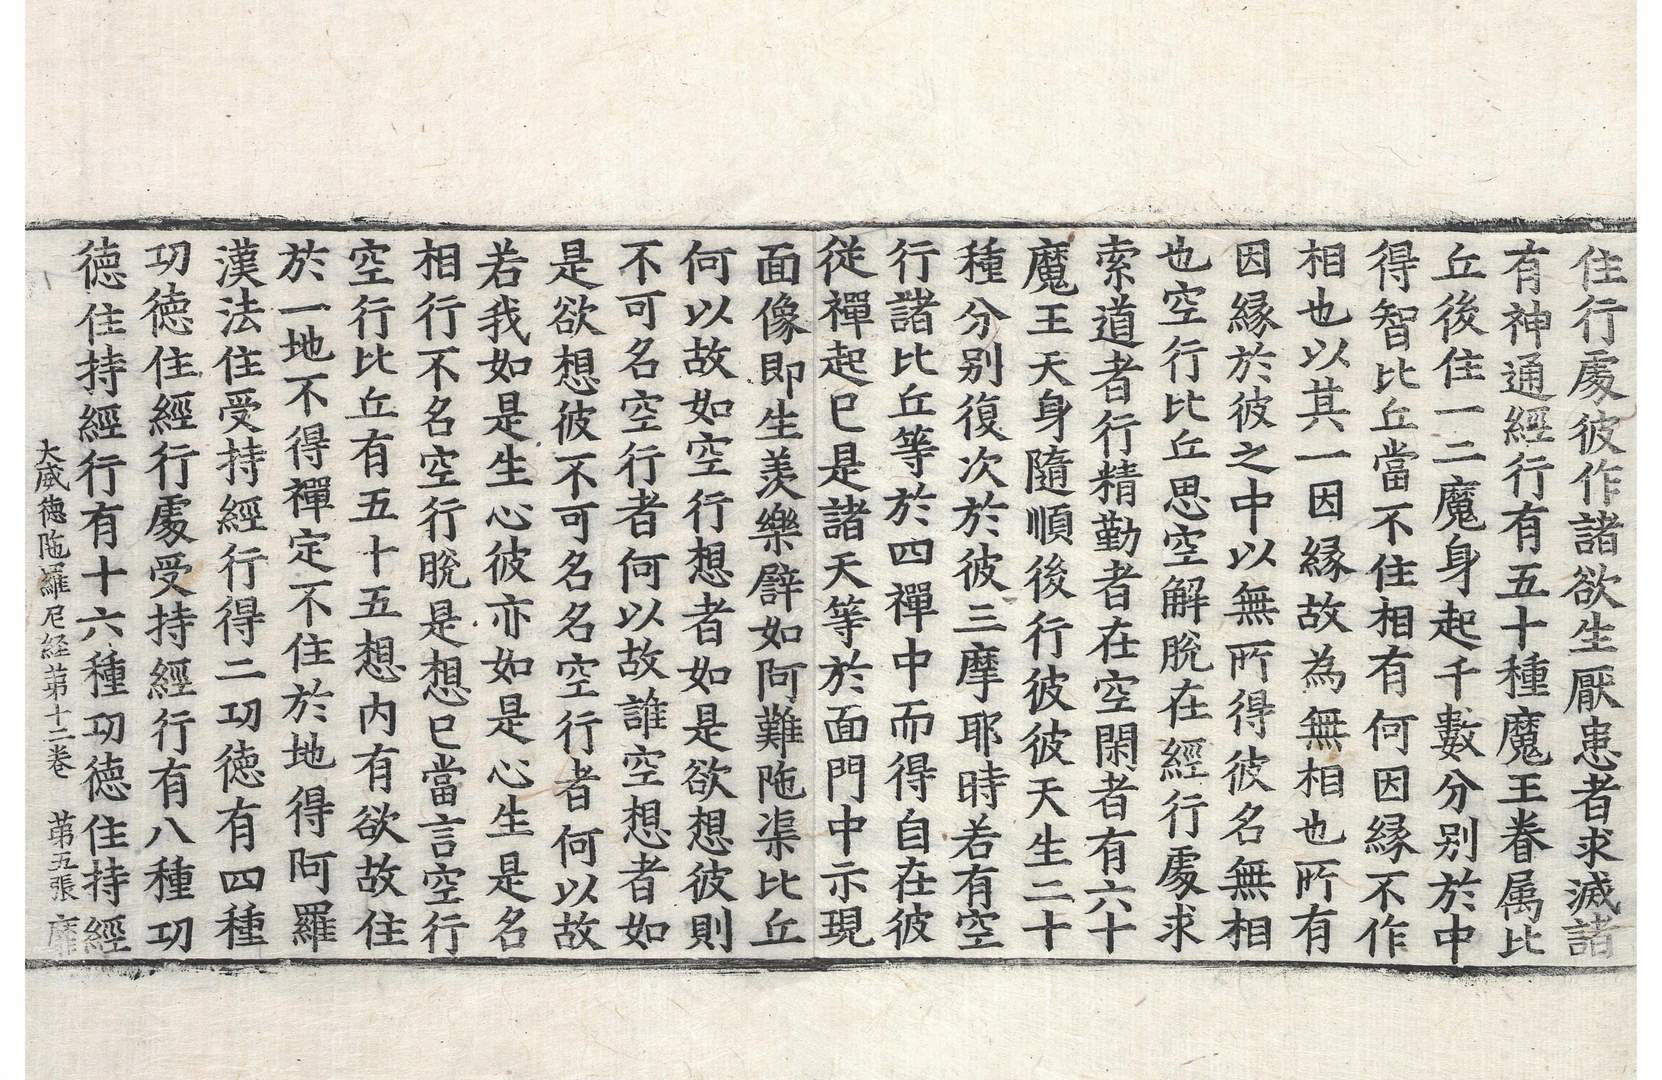 住行處彼作諸欲生厭患者求滅諸
有神通經行有五十種魔王眷属比
丘後住一二魔身起千數分别於中
得智比丘當不住相有何因縁不作
相也以其一因縁故為無相也所有
因縁於彼之中以無所得彼名無相
也空行比丘思空解脫在經行處求
索道者行精勤者在空閑者有六十
魔王天身隨順後行彼彼天生二十
種分别復次於彼三摩耶時若有空
行諸比丘等於四禪中而得自在彼
從禪起已是諸天等於面門中示現
面像即生美樂譬如阿難陁渠比丘
何以故如空行想者如是欲想彼則
不可名空行者何以故誰空想者如
是欲想彼不可名名空行者何以故
若我如是生心彼亦如是心生是名
相行不名空行脫是想已當言空行
空行比丘有五十五想内有欲故住
於一地不得禪定不住於地得阿羅
漢法住受持經行得二功徳有四種
功徳住經行處受持經行有八種功
徳住持經行有十六種功徳住持經
大威徳陁羅尼経苐十二巻 苐五張 靡